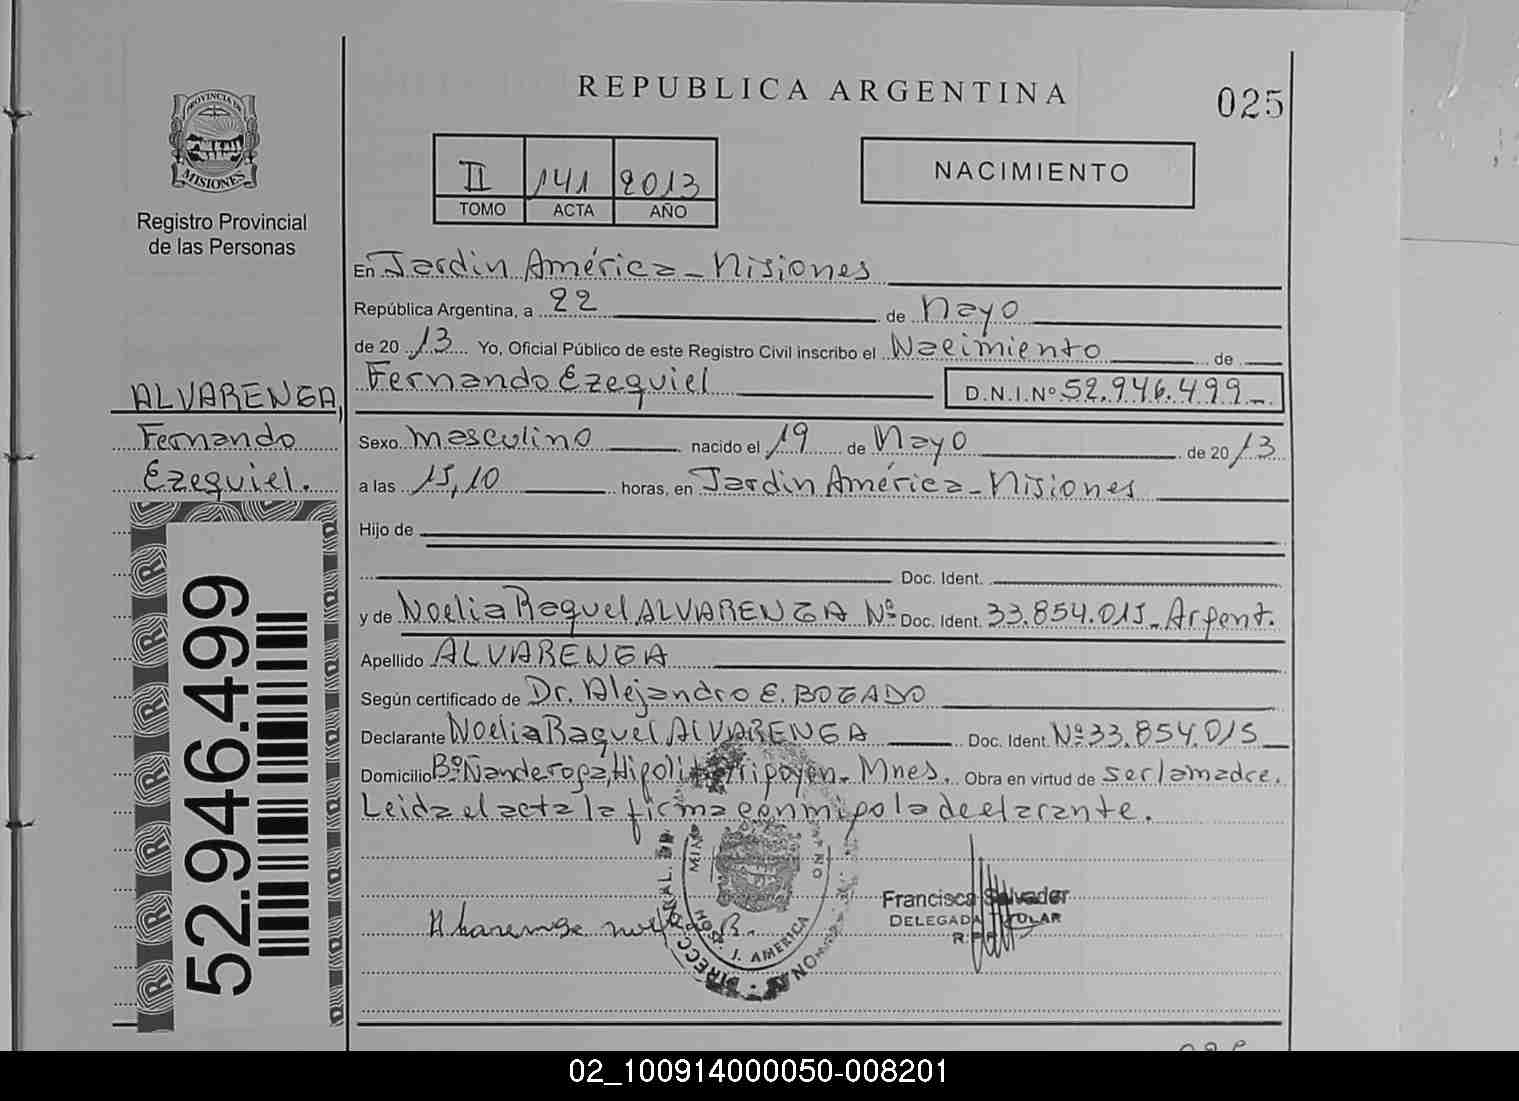 REPUBLICA ARGENTINA
025
PROVINCIA DE
MISIONES
Registro Provincial
de las Personas
II 141 2013
TOMO ACTA AÑO
NACIMIENTO
En Jardin América - Misiones
República Argentina, a 22 de Mayo
de 20 13 Yo, Oficial Público de este Registro Civil inscribo el Nacimiento de
Fernando Ezequiel D.N.I.Nº 52.946.499-
ALVARENGA,
Fernando
Ezequiel.
Sexo masculino nacido el 19 de Mayo de 20 13
a las 15,10 horas, en Jardin América - Misiones
Hijo de
Doc. Ident.
y de Noelia Raquel ALVARENGA Nº Doc. Ident. 33.854.015 - Argent.
Apellido ALVARENGA
Según certificado de Dr. Alejandro E. BOGADO
Declarante Noelia Raquel ALVARENGA Doc. Ident. Nº 33.854.015
Domicilio Bº Ñanderoga, Hipolito Yripoyen - Mnes. Obra en virtud de ser la madre.
Leida el acta la firma conmigo la declarante.
52.946.499
Francisca Salvador
DELEGADA TITULAR
Alvarenga B.
J. AMERICA
02_100914000050-008201